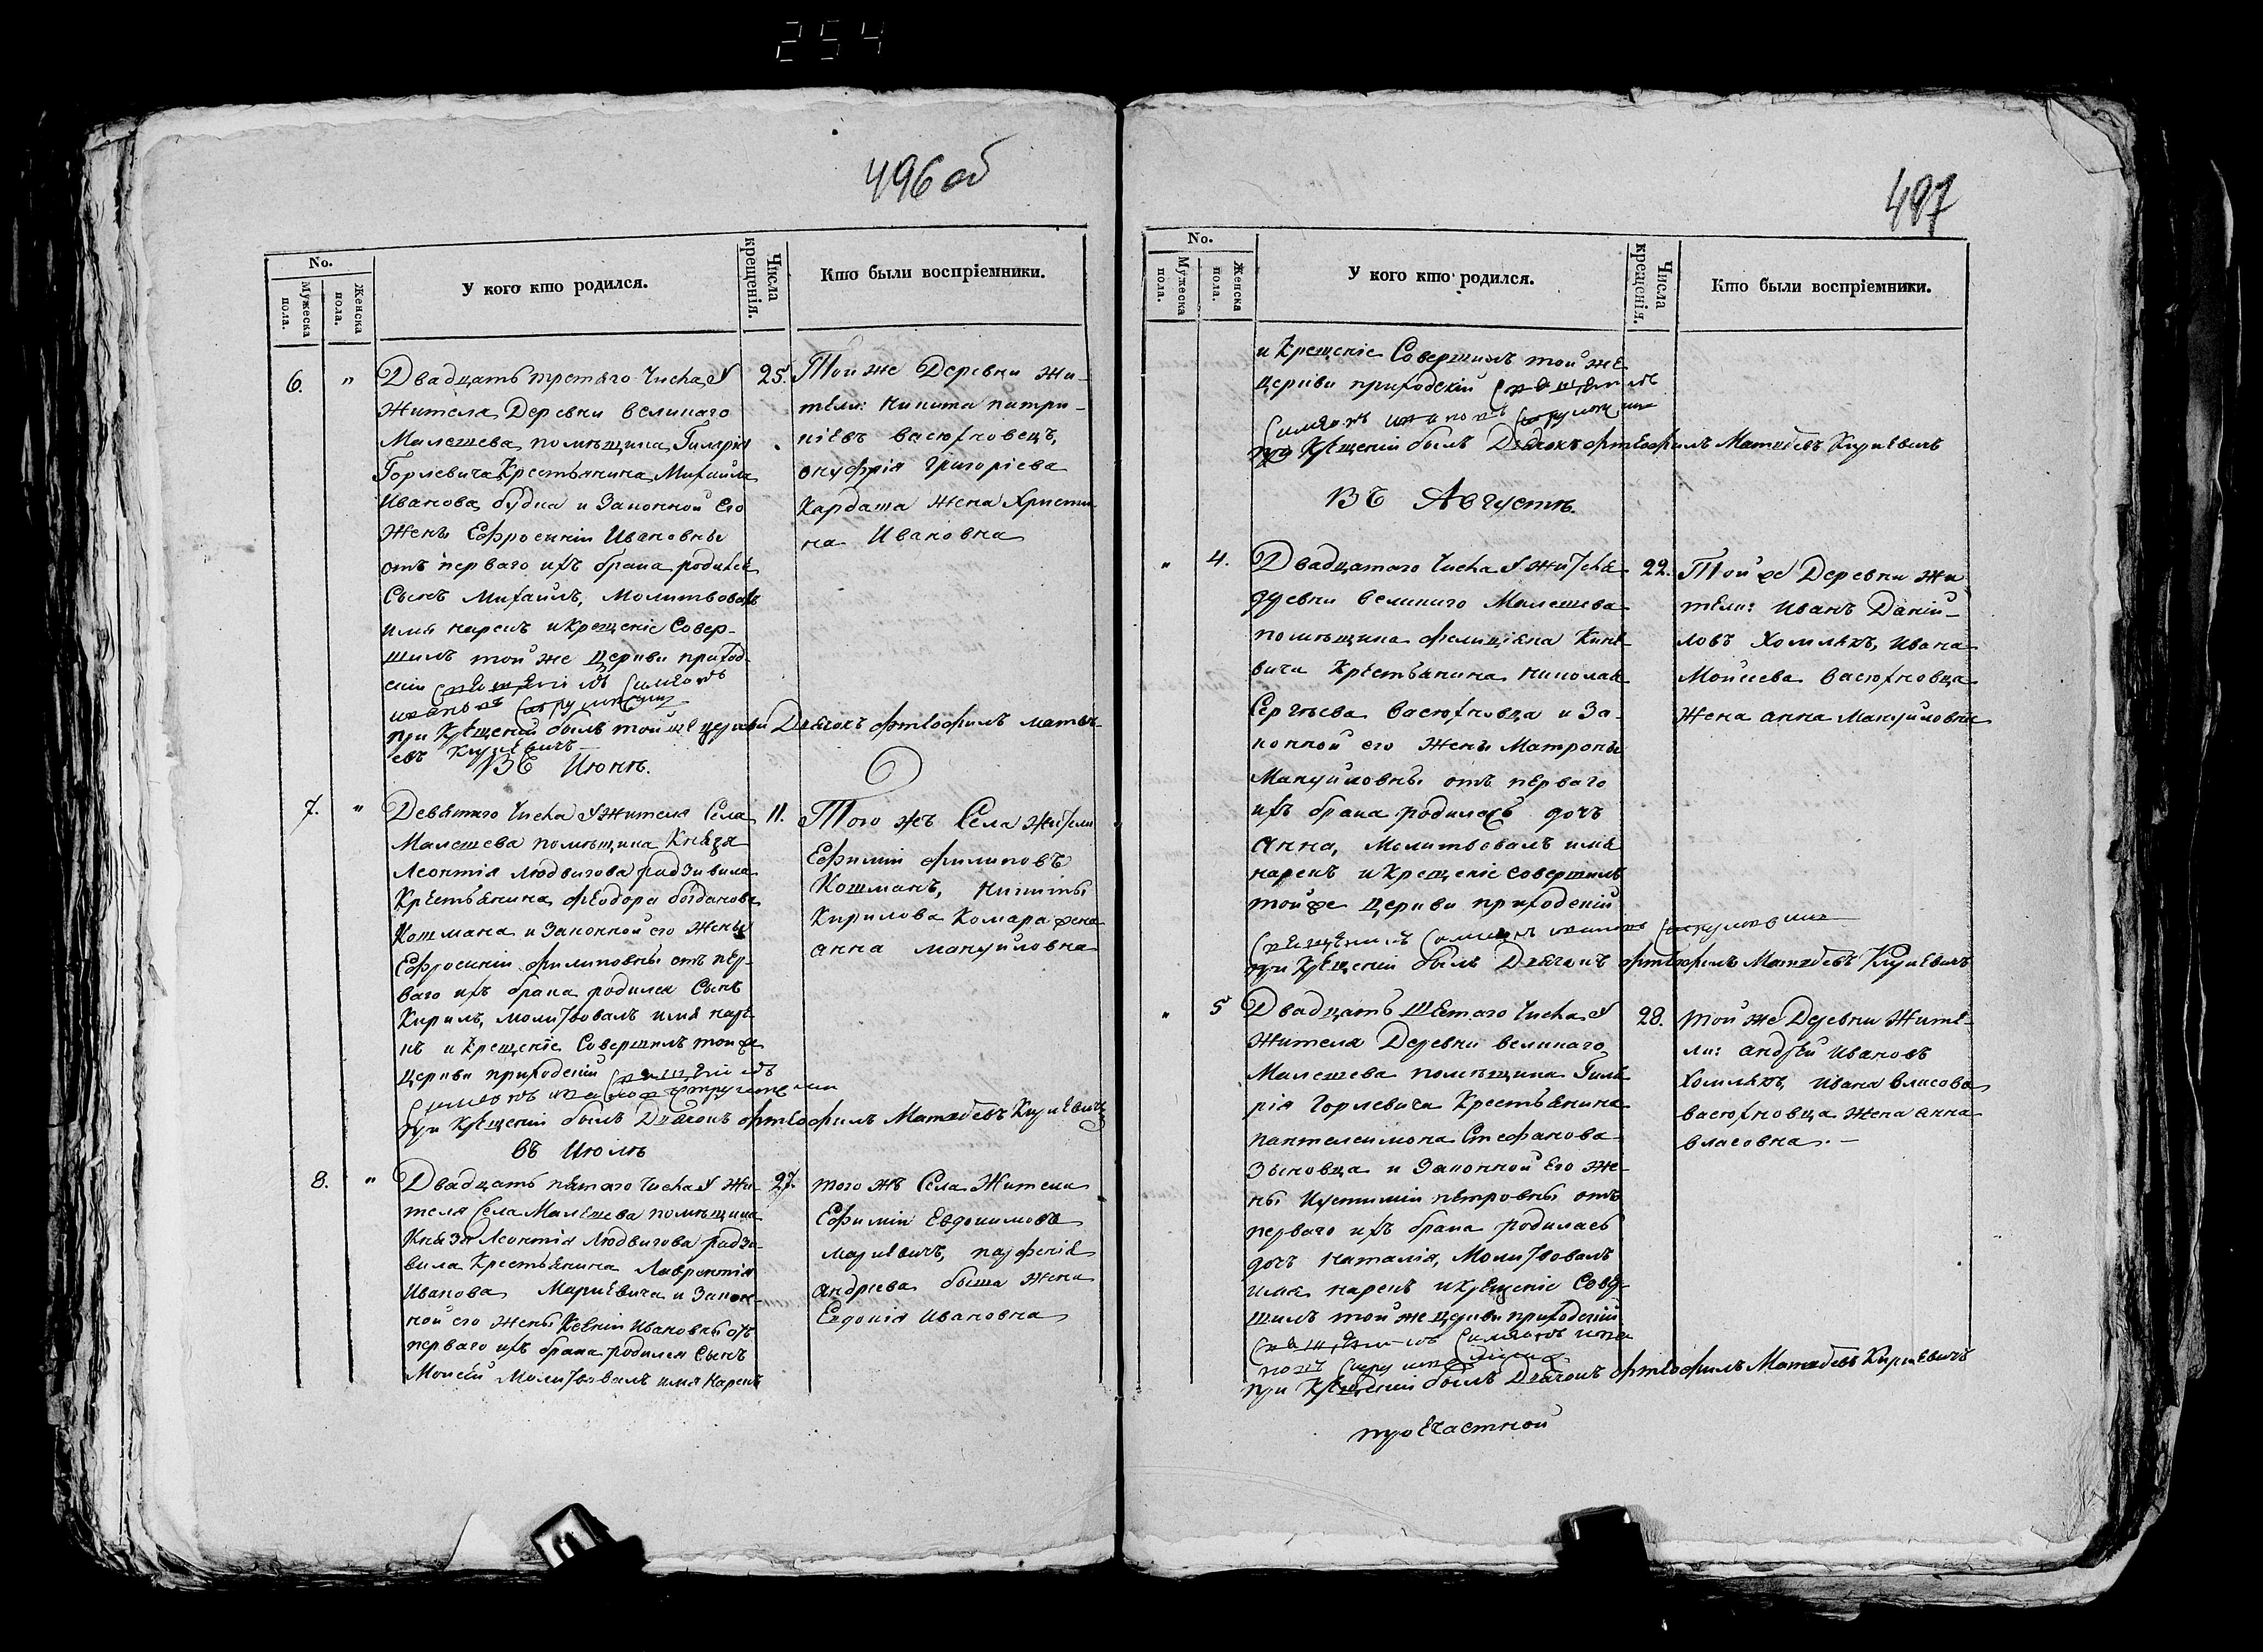 254
496 об
No.
Мужеска пола.
Женска пола.
У кого кто родился.
Числа крещенія.
Кто были воспріемники.
6. " Двадцать третяго числа У
жителя Деревни великаго
Малешева помѣщика Гилярія
Горлевича Крестьянина Михаила
Иванова будка и Законной Его
Жены Ефросиніи Ивановны
отъ перваго ихъ брака родился
Сынъ Михаилъ, Молитвовалъ
имя нарекъ и крещеніе Совер-
шилъ той же Церкви приход-
скій Священникъ Симеонъ
при Крещеніи былъ той же церкви Дьячокъ Фтеофилъ Матве-
евъ
25. Той же Деревни жи-
тели: Никита патри-
кіевъ васюхновецъ,
онуфрія Григоріева
Кардаша жена Христи-
на Ивановна
ВЪ Июнѣ.
7. " Девятаго числа У жителя Села
Малешева помѣщика Князя
Леонтія Людвигова радзивила
Крестьянина Феодора богданова
Кошмана и Законной его Жены
Ефросиніи филиповны отъ пер-
ваго ихъ брака родился Сынъ
Кирилъ, молитвовалъ имя наре-
къ и Крещеніе Совершилъ той же
Церкви приходскій Священникъ
Симеонъ
при Крещеніи былъ Дьячокъ Фтеофилъ Матвѣевъ
11. Того жъ Села жители
Ефимій филиповъ
Кошманъ, Никиты
Кирилова Комара жена
анна мануйловна
въ Июлѣ
8. " Двадцать пятаго числа У жи-
теля Села Малешева помѣщика
Князя Леонтія Людвигова радзи-
вила Крестьянина Лаврентія
Иванова Маркевича и Закон-
ной его жены Ксеніи Ивановны отъ
перваго ихъ брака родился Сынъ
Моисей Молитвовалъ имя Нарекъ
27. того жъ Села Жители
Ефимій Евдокимовъ
маркевичъ, парфенія
андреева жена
Евдокія Ивановна
497
No.
Мужеска пола.
Женска пола.
У кого кто родился.
Числа крещенія.
Кто были воспріемники.
и Крещеніе Совершилъ той же
церкви приходскій Священникъ
Симеонъ
при Крещеніи былъ Дьячокъ Фтеофилъ Матвѣевъ
ВЪ Августѣ.
" 4. Двадцатаго числа У жителя
деревни великаго Малешева
помѣщика
вича Крестьянина николая
Сергѣева Васюхновца и За-
конной его жены Матроны
Мануйловны отъ перваго
ихъ брака родилась дочь
Анна, Молитвовалъ имя
нарекъ и Крещеніе совершилъ
той же Церкви приходскій
Священникъ Симеонъ
при Крещеніи былъ Дьячокъ Фтеофилъ Матвѣевъ
22. Той же Деревни жи
тели: Иванъ Даній-
ловъ Хомлякъ, Ивана
Мойсиева васюхновца
жена анна Мануйловна
" 5 Двадцать шестаго числа У
жителя Деревни великаго
Малешева помѣщика Гиля
рія Горлевича Крестьянина
пантелеимона Стефанова
Зыновца и Законной Его же-
ны Иустиніи петровны отъ
перваго ихъ брака родилась
дочь Наталія, Молитвовалъ
имя нарекъ и крещеніе Совер-
шилъ той же Церкви приходскій
Священникъ Симеонъ
при Крещеніи былъ Дьячокъ Фтеофилъ Матвѣевъ
28. той же Деревни жите-
ли: андрей Ивановъ
Хомлякъ, ивана власова
васюхновца жена анна
власовна.